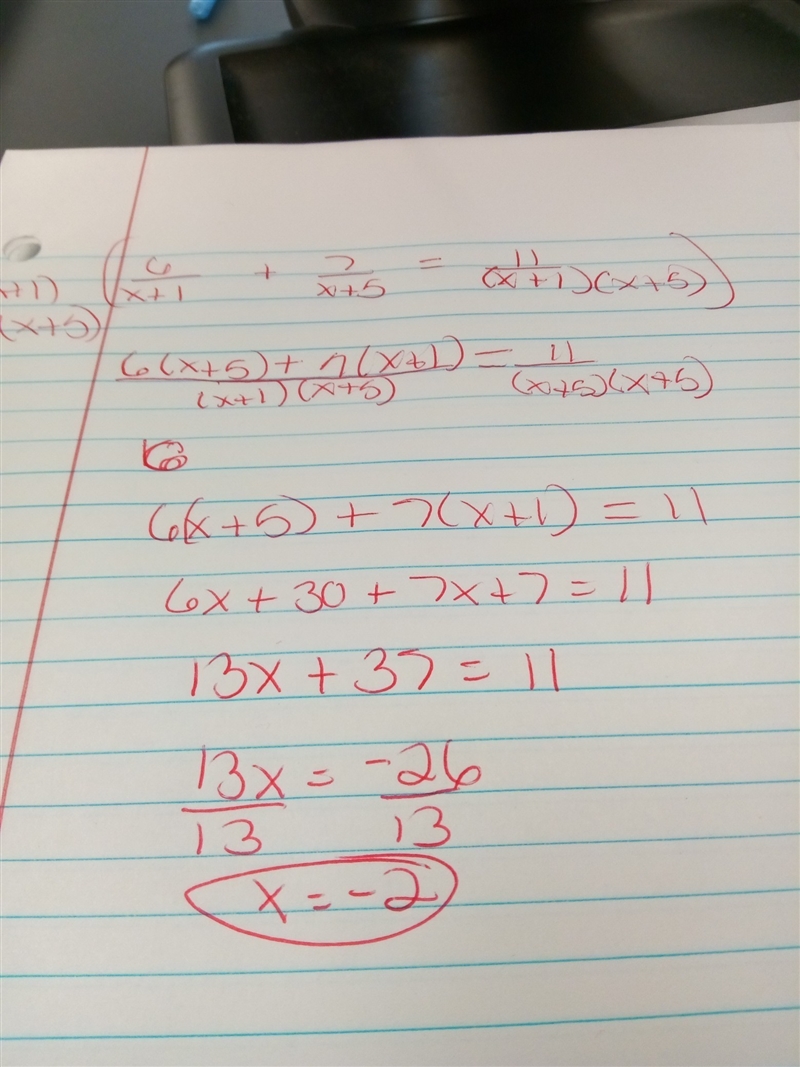 (6/(x+1) + 7/(x+5) = 11/((x+1)(x+5)))
+1)
(x+5)
(6(x+5)+7(x+1))/((x+1)(x+5)) = 11/((x+5)(x+5))
6
6(x+5)+7(x+1)=11
6x+30+7x+7=11
13x+37=11
13x/13 = -26/13
x=-2